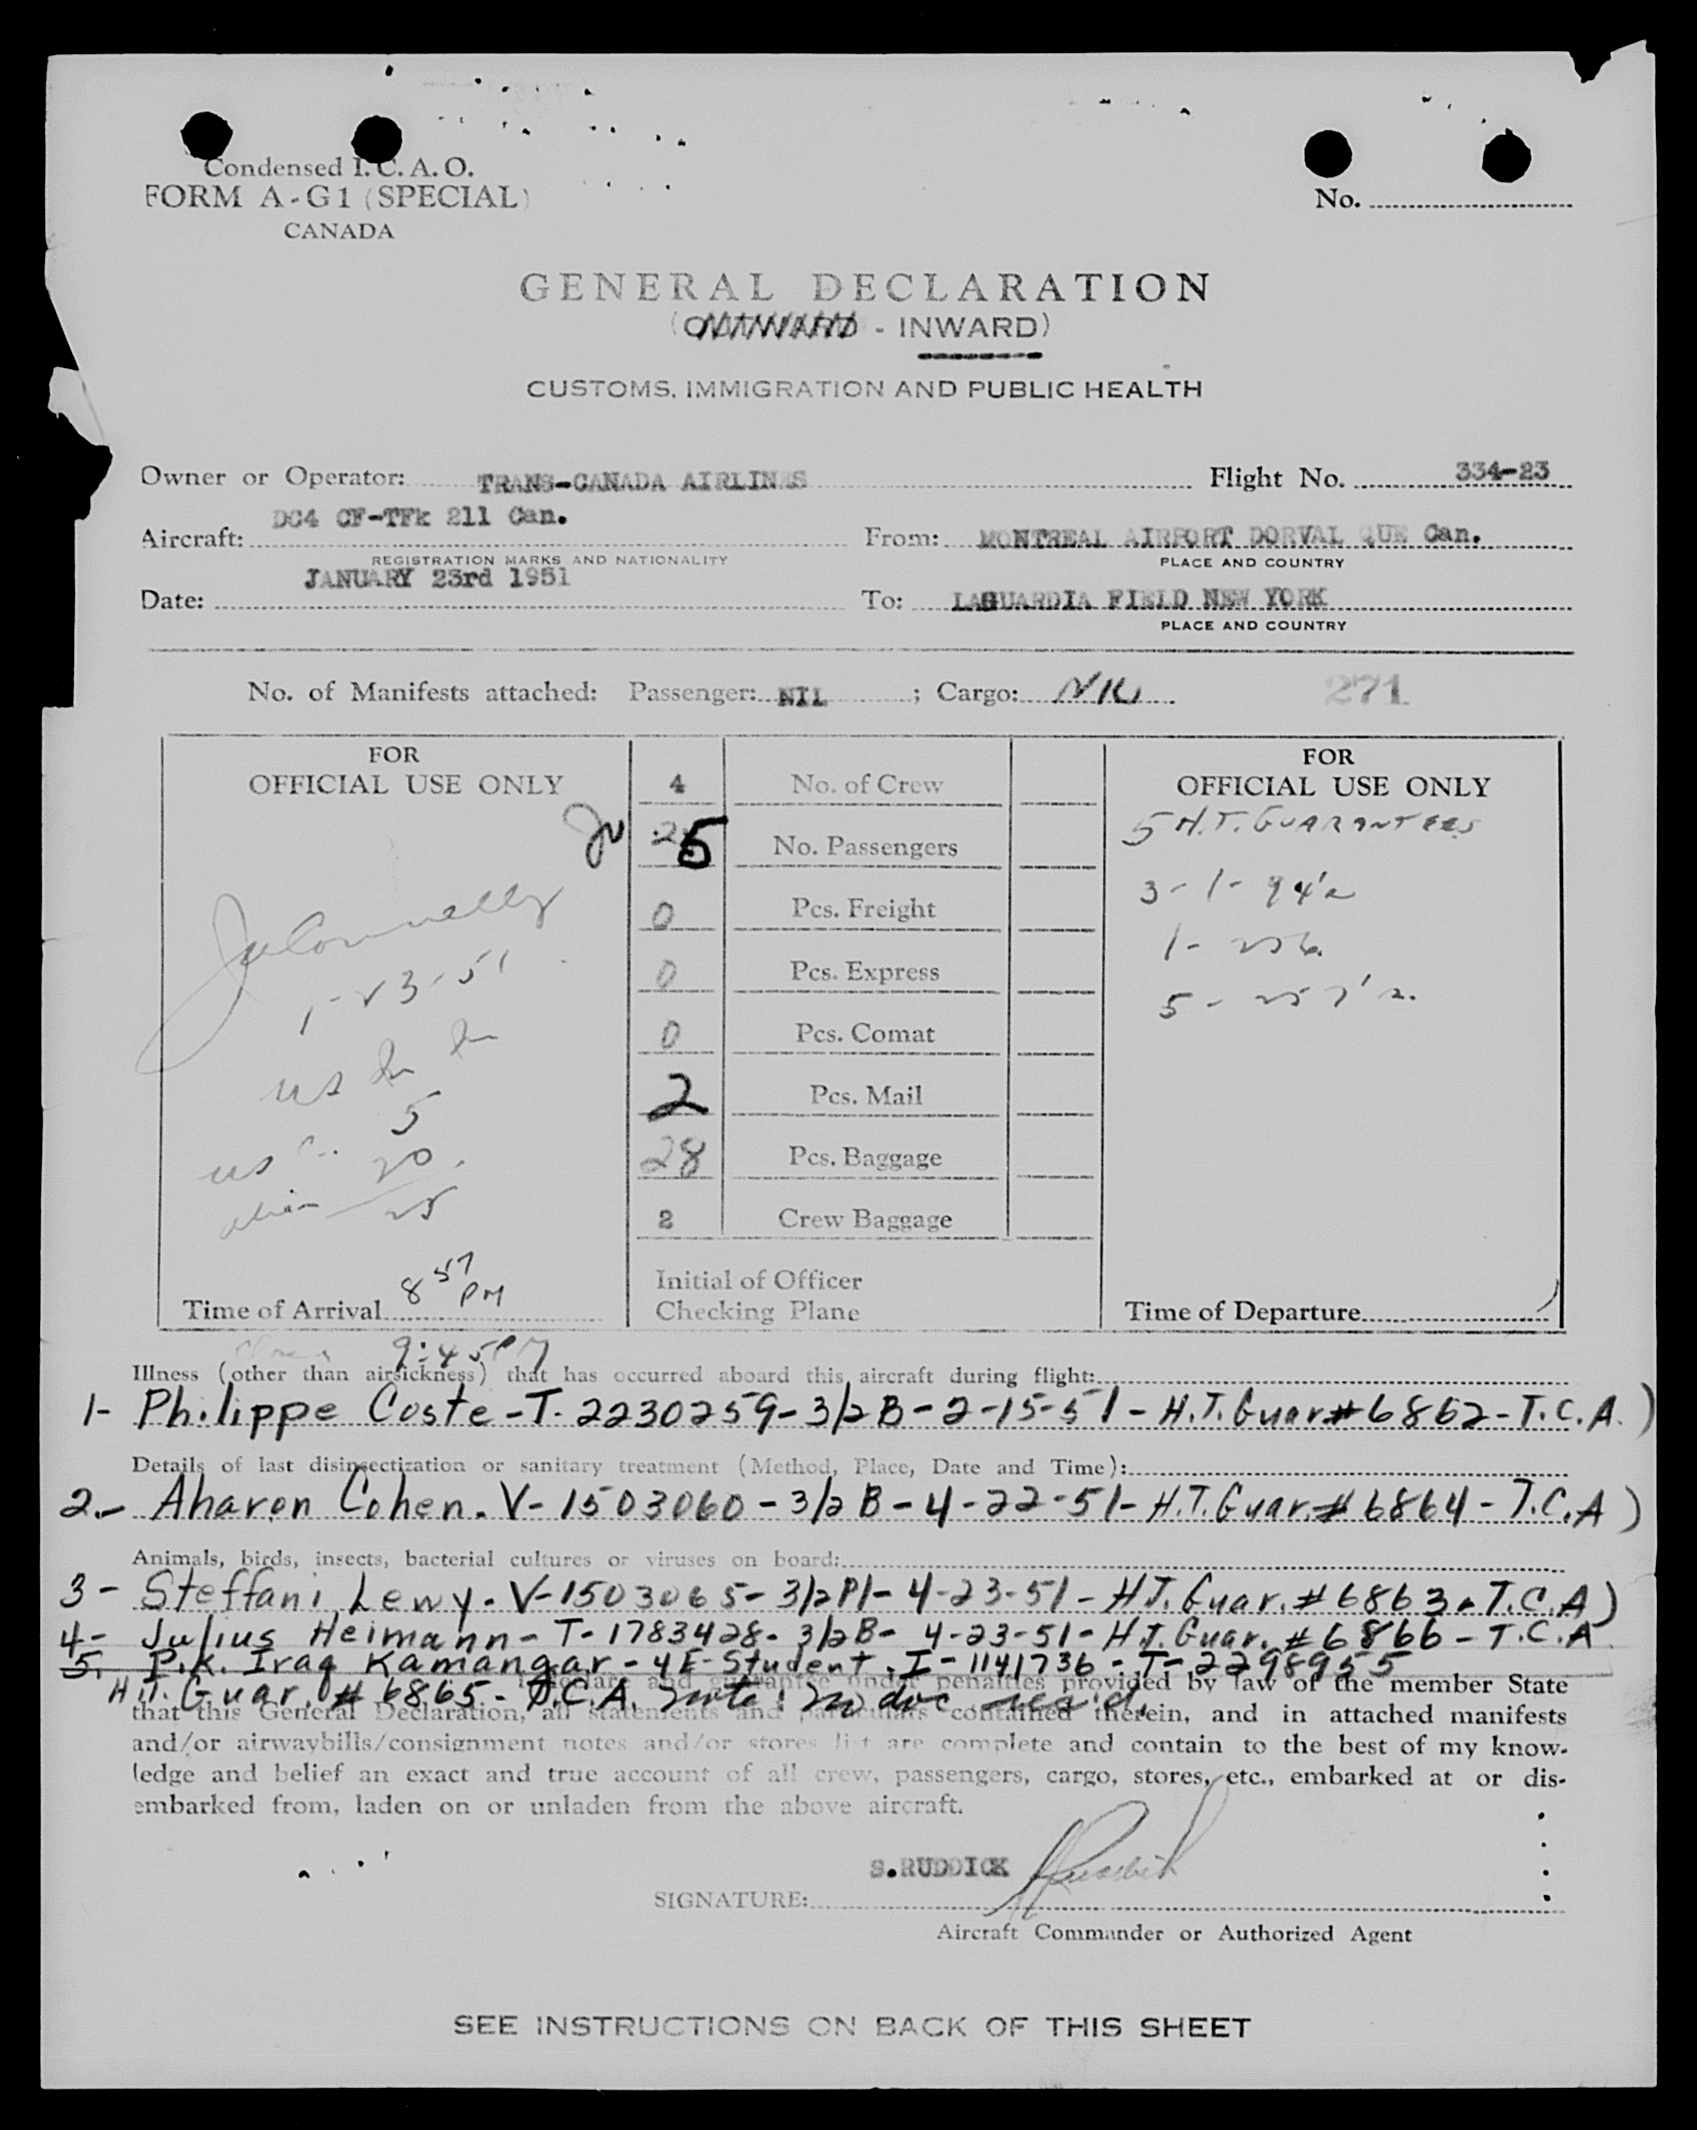 Condensed I.C.A.O.
FORM A-G1 (SPECIAL)
CANADA
No.
GENERAL DECLARATION
(OUTWARD - INWARD)
CUSTOMS, IMMIGRATION AND PUBLIC HEALTH
Owner or Operator: TRANS-CANADA AIRLINES Flight No. 334-23
Aircraft: DC4 CF-TFk 211 Can. From: MONTREAL AIRPORT DORVAL QUE Can.
REGISTRATION MARKS AND NATIONALITY PLACE AND COUNTRY
Date: JANUARY 23rd 1951 To: LAGUARDIA FIELD NEW YORK
PLACE AND COUNTRY
No. of Manifests attached: Passenger: NIL ; Cargo: NIL 271
FOR
OFFICIAL USE ONLY
JaConnelly
1-23-51
us
5
us C. 20.
alien 25
8 57 PM
Time of Arrival
9:45 PM
4 No. of Crew
25 No. Passengers
0 Pcs. Freight
0 Pcs. Express
0 Pcs. Comat
2 Pcs. Mail
28 Pcs. Baggage
2 Crew Baggage
Initial of Officer
Checking Plane
FOR
OFFICIAL USE ONLY
5 H.T. GUARANTEES
3-1-94's
1- 256.
5 - 257's.
Time of Departure
Illness (other than airsickness) that has occurred aboard this aircraft during flight:
1- Philippe Coste-T-2230259-3/2B-2-15-51-H.T.Guar#6862-T.C.A.)
Details of last disinsectization or sanitary treatment (Method, Place, Date and Time):
2.- Aharon Cohen. V-1503060-3/2B-4-22-51-H.T.Guar.#6864-T.C.A)
Animals, birds, insects, bacterial cultures or viruses on board:
3- Steffani Lewy. V-1503065-3/2Pl-4-23-51-H.T.Guar.#6863-T.C.A)
4- Julius Heimann-T-1783428-3/2B-4-23-51-H.T.Guar.#6866-T.C.A
5. P.K. Iraq Kamangar-4E-Student.I-1141736-T-2298955
H.T.Guar.#6865-T.C.A. Note: no doc rec'd.
I declare and guarantee under penalties provided by law of the member State
that this General Declaration, all statements and particulars contained therein, and in attached manifests
and/or airwaybills/consignment notes and/or stores list are complete and contain to the best of my know-
ledge and belief an exact and true account of all crew, passengers, cargo, stores, etc., embarked at or dis-
embarked from, laden on or unladen from the above aircraft.
S.RUDDICK
SIGNATURE:
Aircraft Commander or Authorized Agent
SEE INSTRUCTIONS ON BACK OF THIS SHEET